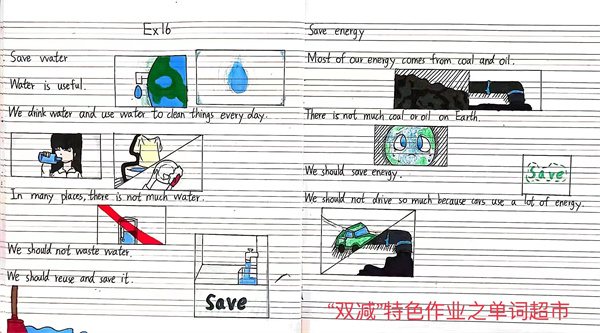 Ex16
Save water
Water is useful.
We drink water and use water to clean things every day.
In many places, there is not much water.
We should not waste water.
We should reuse and save it.
Save
Save energy
Most of our energy comes from coal and oil.
There is not much coal or oil on Earth.
We should save energy.
Save
We should not drive so much because cars use a lot of energy.
“双减”特色作业之单词超市